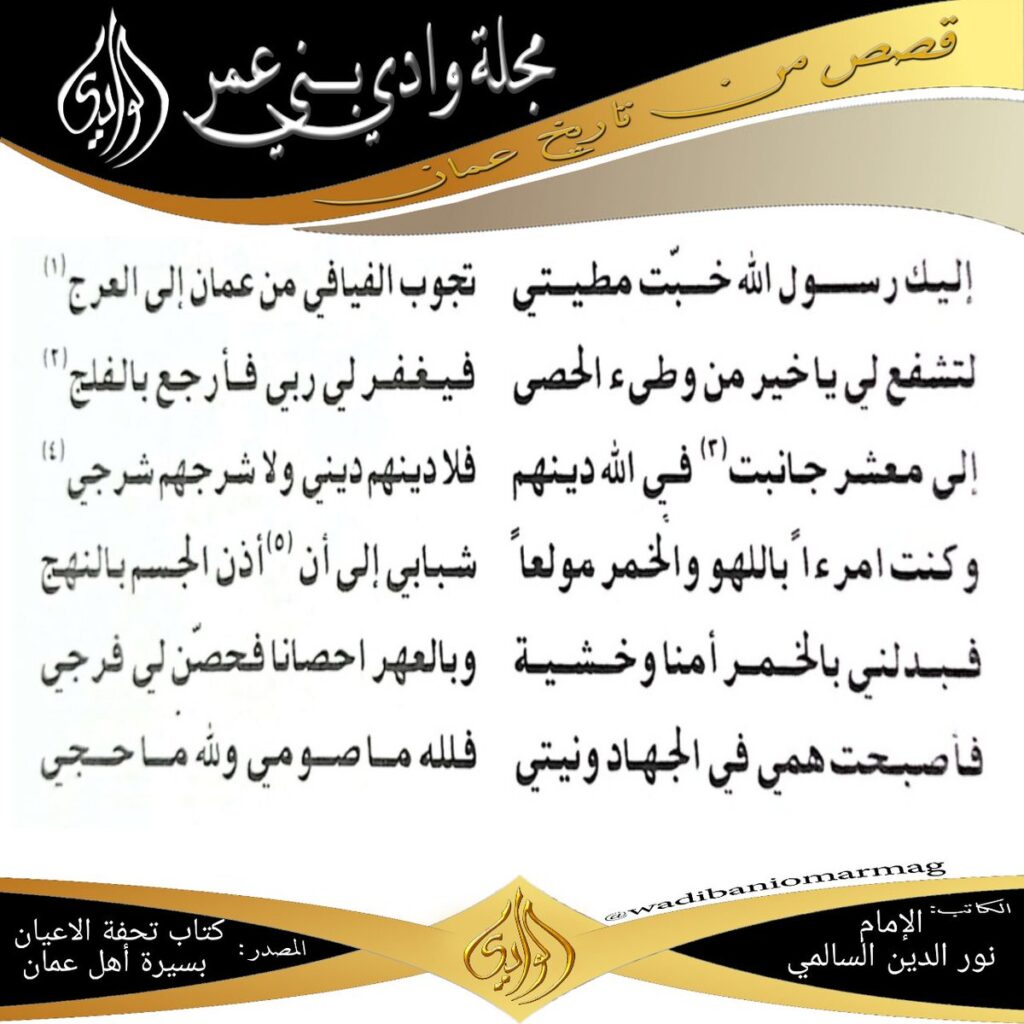 قصص من تاريخ عمان
مجلة وادي بني عمر
الوادي
إليك رسول الله خبّت مطيتي تجوب الفيافي من عمان إلى العرج (١)
لتشفع لي يا خير من وطىء الحصى فيغفر لي ربي فأرجع بالفلج (٢)
إلى معشر جانبت (٣) في الله دينهم فلا دينهم ديني ولا شرجهم شرجي (٤)
وكنت امرءاً باللهو والخمر مولعاً شبابي إلى أن (٥) أذن الجسم بالنهج
فبدلني بالخمر أمنا وخشية وبالعهر احصانا فحصّن لي فرجي
فأصبحت همي في الجهاد ونيتي فلله ما صومي ولله ما حجي
@wadibaniomarmag
الكاتب: الإمام
نور الدين السالمي
الوادي
المصدر: كتاب تحفة الاعيان
بسيرة أهل عمان